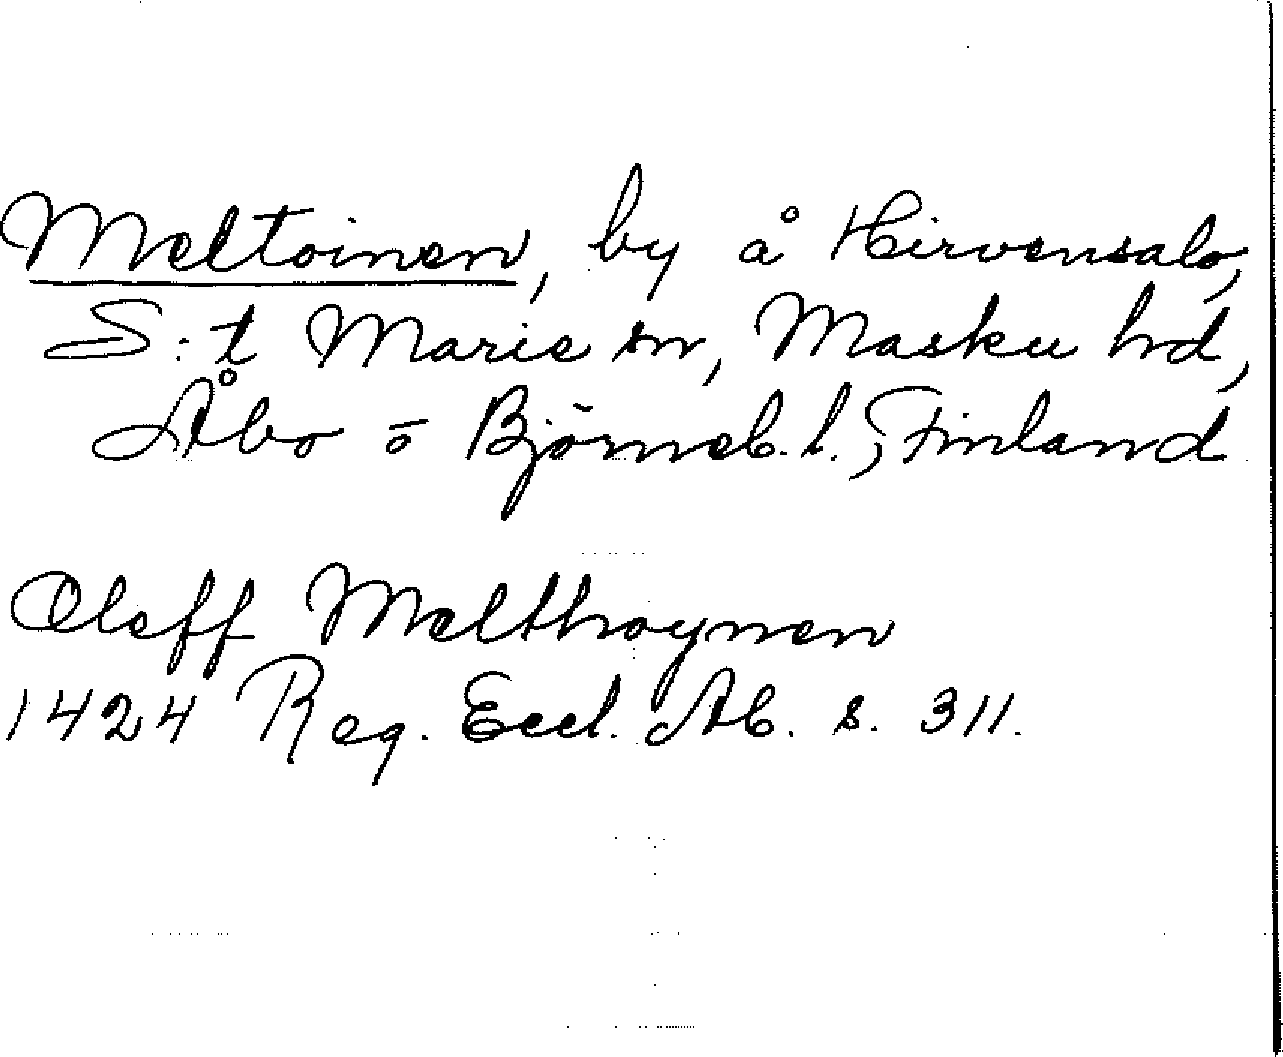 Meltoinen, by å Hirvensalo,
S:t Marie sn, Masku hd,
Åbo o Björneb. l., Finland
Oleff Melthoynen
1424 Reg. Eccl. Ab. s. 311.